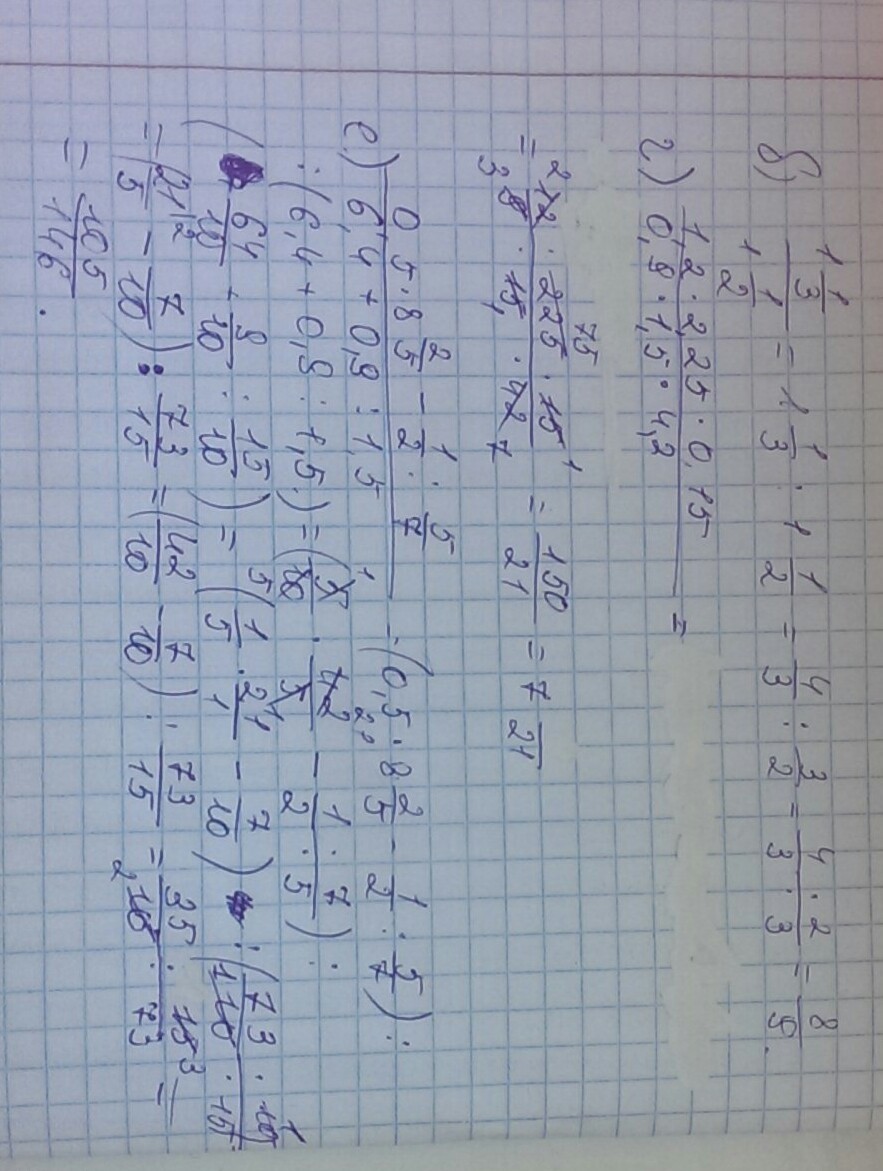 б) 1 1/3 / 1 1/2 = 1 1/3 : 1 1/2 = 4/3 : 3/2 = 4·2/3·3 = 8/9.
г) 1,2 · 2,25 · 0,15 / 0,9 · 1,5 · 4,2 =
= 12 · 225 · 15 / 9 · 15 · 42 = 150/21 = 7 /21
е) 0,5·8 2/5 - 1/2 : 5/7 / 6,4 + 0,9 : 1,5 = (0,5·8 2/5 - 1/2 : 5/7) :
: (6,4 + 0,9 : 1,5) = (5/10 · 42/5 - 1·7/2·5) :
(64/10 + 9/10 : 15/10) = (1/5 · 21/1 - 7/10) : (73·10/10·15
= (21/5 - 7/10) : 73/15 = (42/10 - 7/10) : 73/15 = 35 · 15/10 · 73 =
= 105/146.